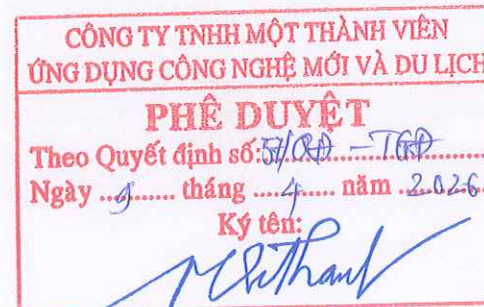 CÔNG TY TNHH MỘT THÀNH VIÊN
ỨNG DỤNG CÔNG NGHỆ MỚI VÀ DU LỊCH
PHÊ DUYỆT
Theo Quyết định số: 57/QĐ - TGĐ
Ngày ... tháng 4 năm 2026
Ký tên: